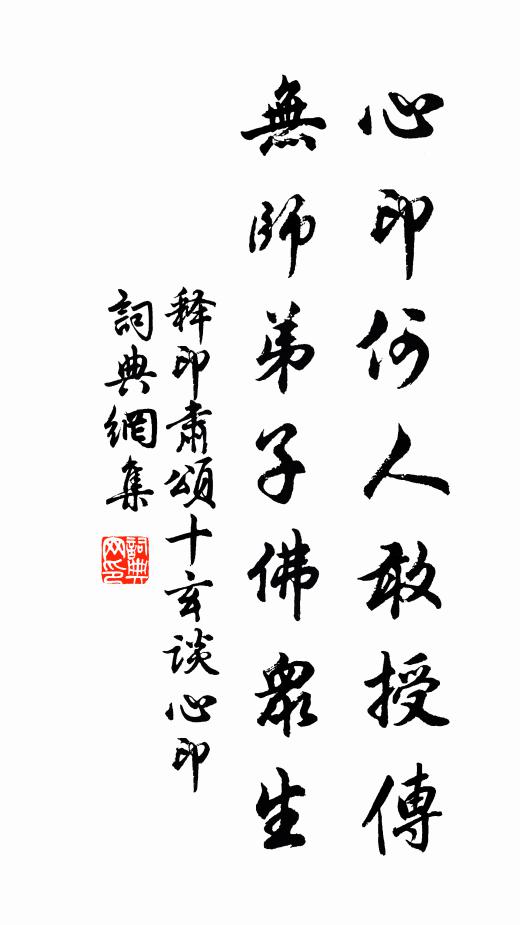 心印何人敢授傳
無師弟子佛眾生
释印肅頌十玄谈心印
詞典網集
詞典网印